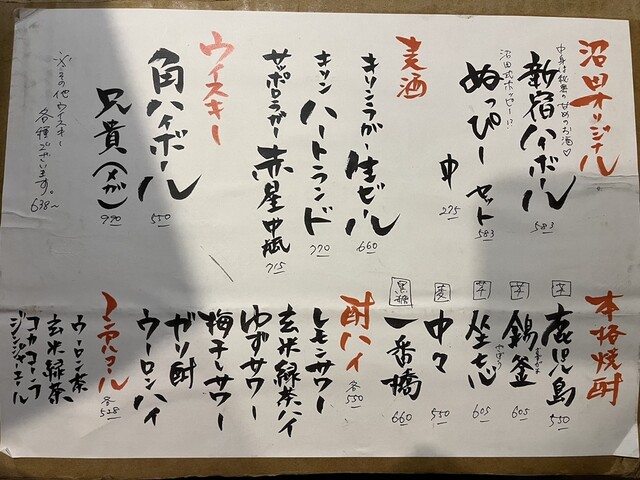 沼田オリジナル
中身は秘密の甘めのお酒♡
新宿ハイボール 583
沼田式ホッピー!?
ぬっぴー セット 583
中 275
麦酒
キリンラガー生ビール 660
キリンハートランド 770
サッポロラガー赤星中瓶 715
ウイスキー
角ハイボール 550
兄貴(メガ) 990
※その他ウイスキー
各種ございます。
638〜
本格焼酎
芋 鹿児島 550
芋 錦釜 605
芋 坐忘 605
麦 中々 550
黒糖 一番橋 660
酎ハイ 各550
レモンサワー
玄米緑茶ハイ
ゆずサワー
梅干サワー
ガリ酎
ウーロンハイ
ノンアルコール 各528
ウーロン茶
玄米緑茶
コカコーラ
ジンジャーエール